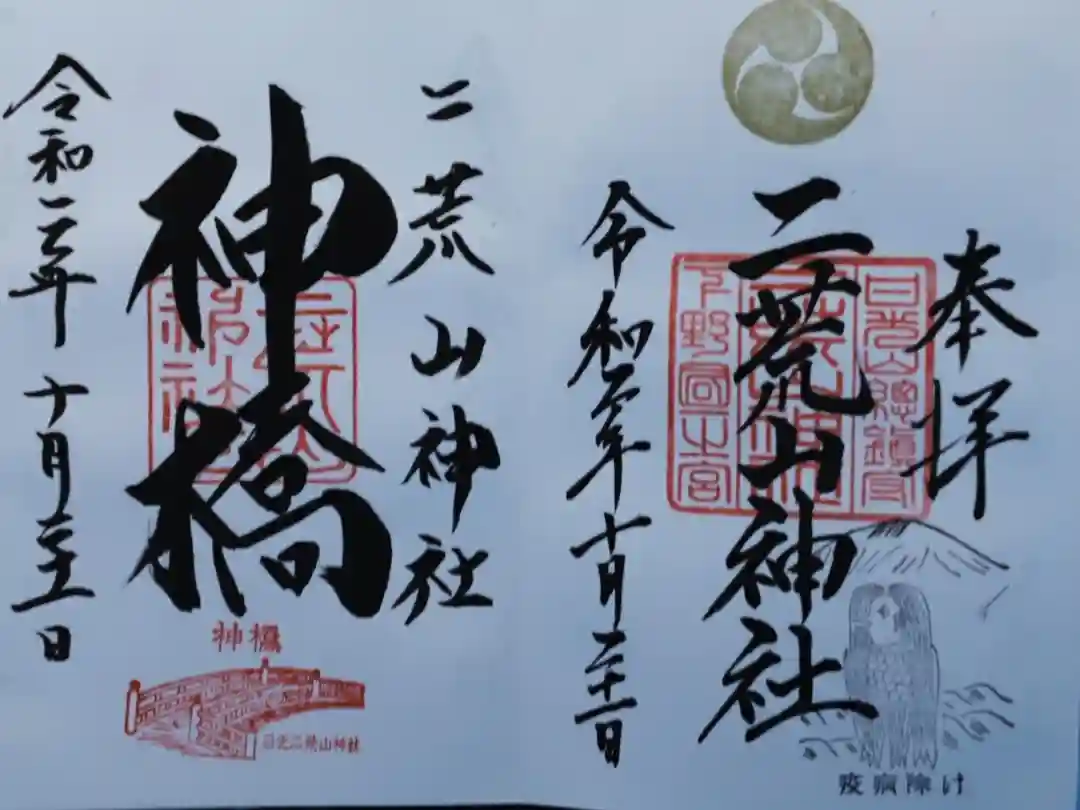 奉拝
日光山總鎮守
二荒山神社
下野國一之宮
令和二年十月二十一日
疫病除け
二荒山神社
神橋
令和二年十月二十一日
神橋
日光二荒山神社